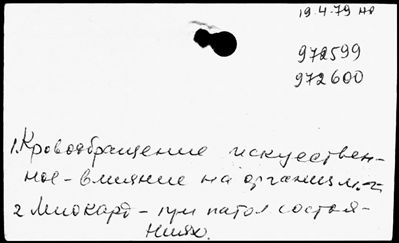 19.4.79 нв
972599
972600
1. Кровообращение искуествен-
ное - влияние на организм.-
2 Миокард - при патол состоя-
ниях.